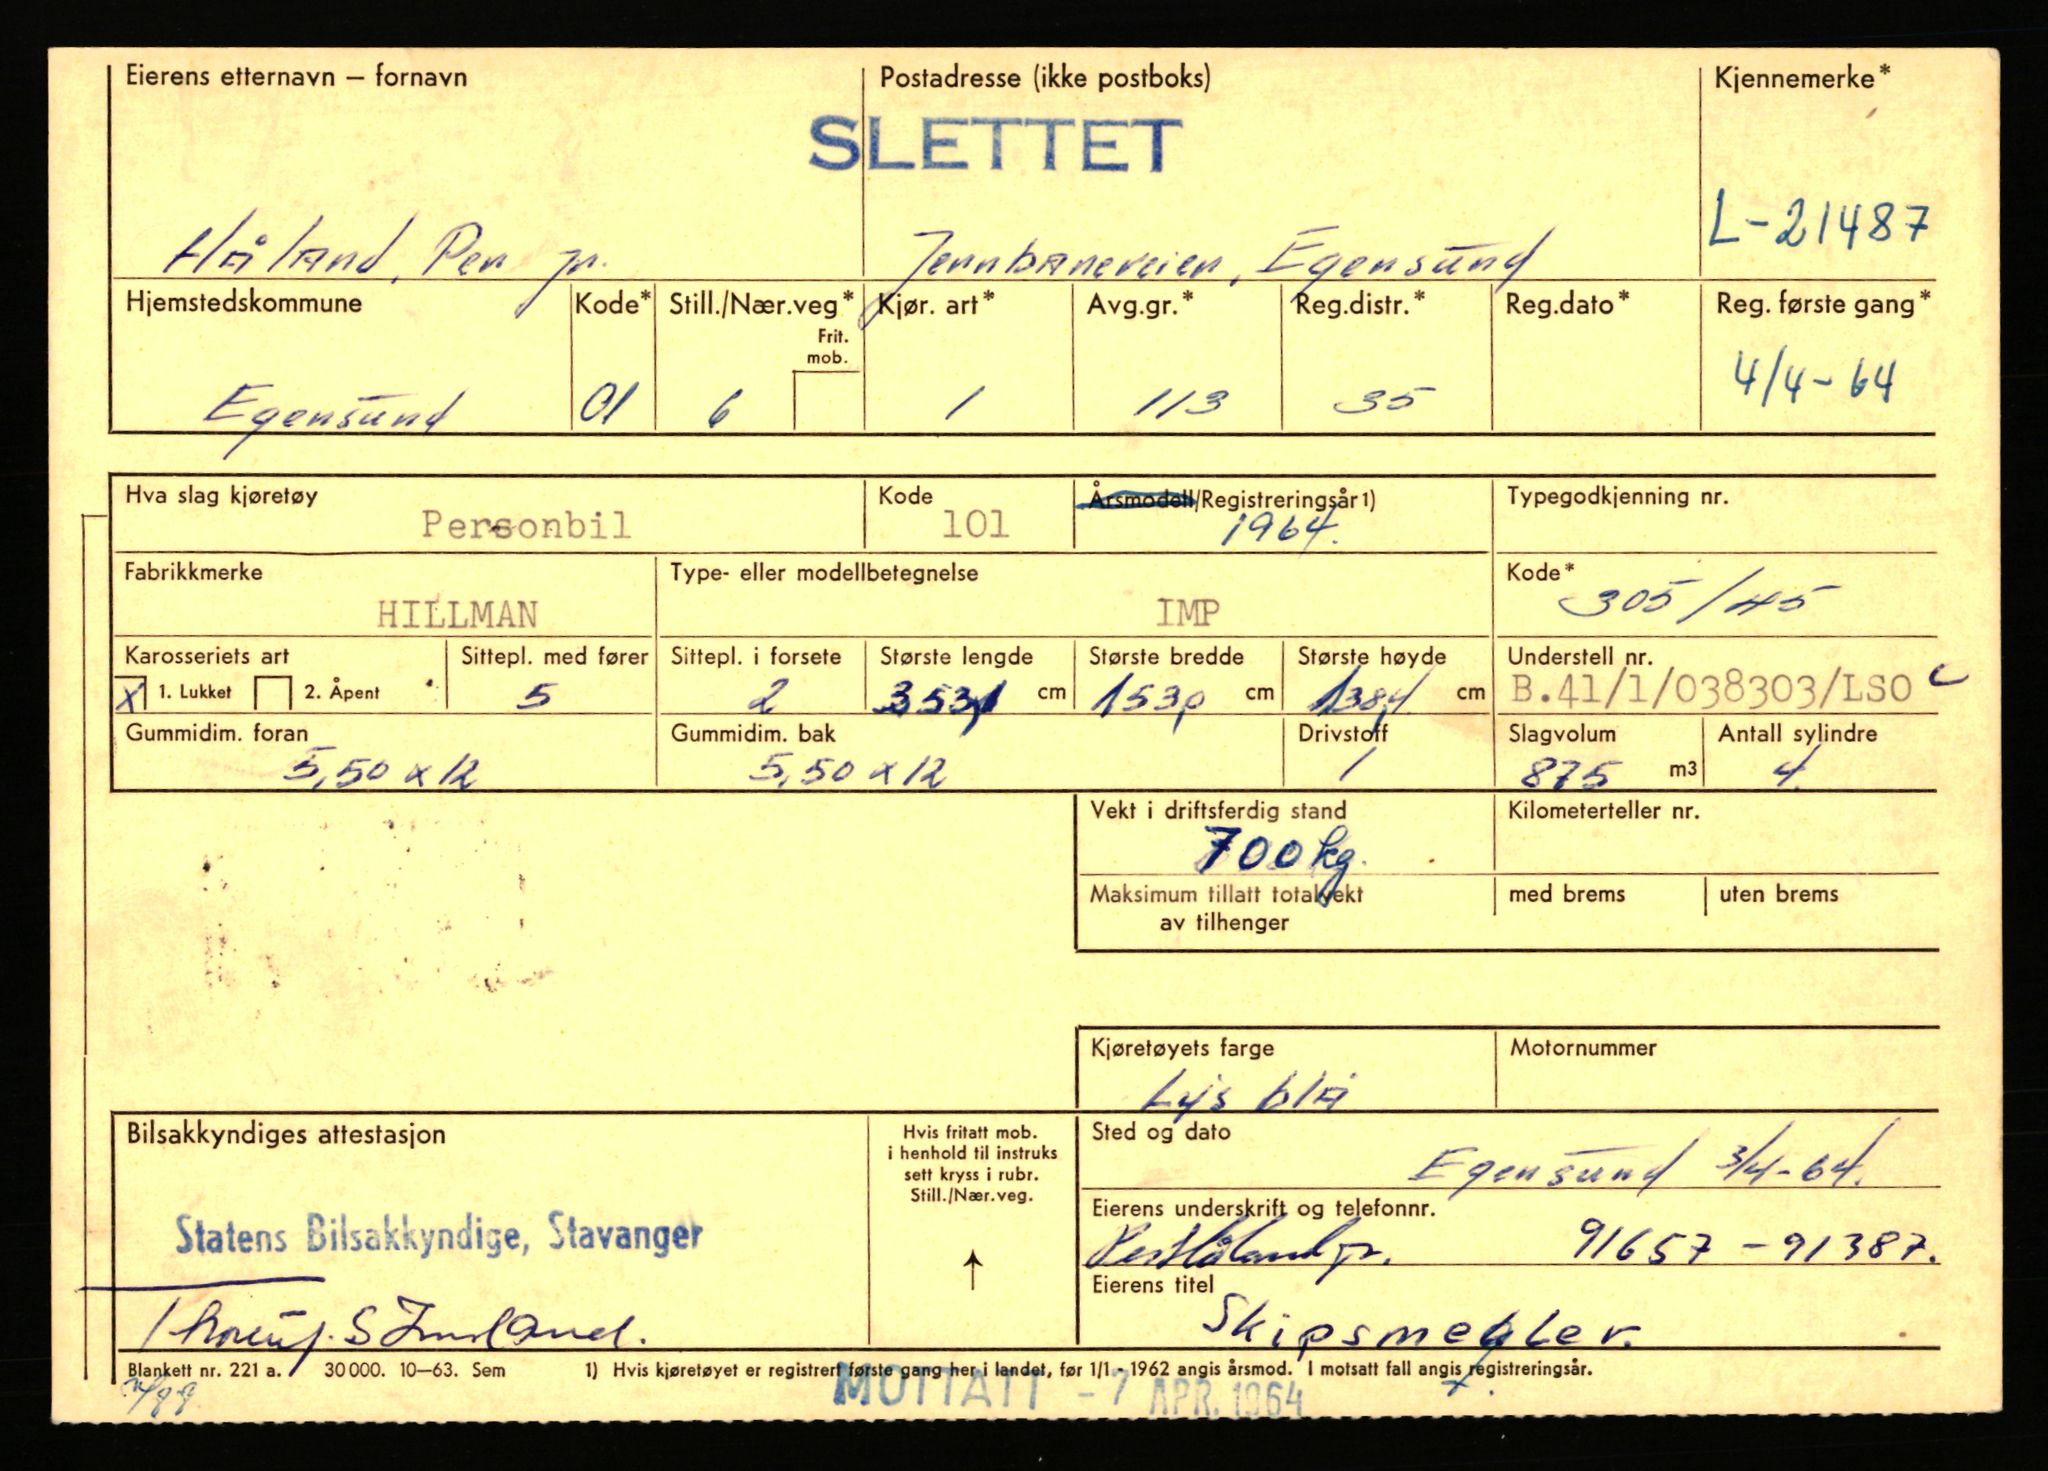 Eierens etternavn – fornavn Postadresse (ikke postboks) Kjennemerke*
SLETTET
Håland, Per jr. Jernbaneveien, Egersund L-21487
Hjemstedskommune Kode* Still./Nær.veg* Frit. mob. Kjør. art* Avg.gr.* Reg.distr.* Reg.dato* Reg. første gang*
Egersund 01 6 1 113 35 4/4-64
Hva slag kjøretøy Kode Årsmodell/Registreringsår 1) Typegodkjenning nr.
Personbil 101 1964.
Fabrikkmerke Type- eller modellbetegnelse Kode*
HILLMAN IMP 305/45
Karosseriets art Sittepl. med fører Sittepl. i forsete Største lengde Største bredde Største høyde Understell nr.
x 1. Lukket 2. Åpent 5 2 353,1 cm 153,0 cm 138,1 cm B.41/1/038303/LSO
Gummidim. foran Gummidim. bak Drivstoff Slagvolum Antall sylindre
5,50 x 12 5,50 x 12 1 875 m3 4
Vekt i driftsferdig stand Kilometerteller nr.
700 kg.
Maksimum tillatt totalvekt av tilhenger med brems uten brems
Kjøretøyets farge Motornummer
Lys blå
Bilsakkyndiges attestasjon Hvis fritatt mob. i henhold til instruks sett kryss i rubr. Still./Nær.veg. Sted og dato
Egersund 3/4-64.
Statens Bilsakkyndige, Stavanger ↑ Eierens underskrift og telefonnr.
Per Håland jr. 91657 - 91387.
Eierens titel
Skipsmegler.
Blankett nr. 221 a. 30 000. 10–63. Sem 1) Hvis kjøretøyet er registrert første gang her i landet, før 1/1 - 1962 angis årsmod. I motsatt fall angis registreringsår.
MOTTATT - 7 APR. 1964